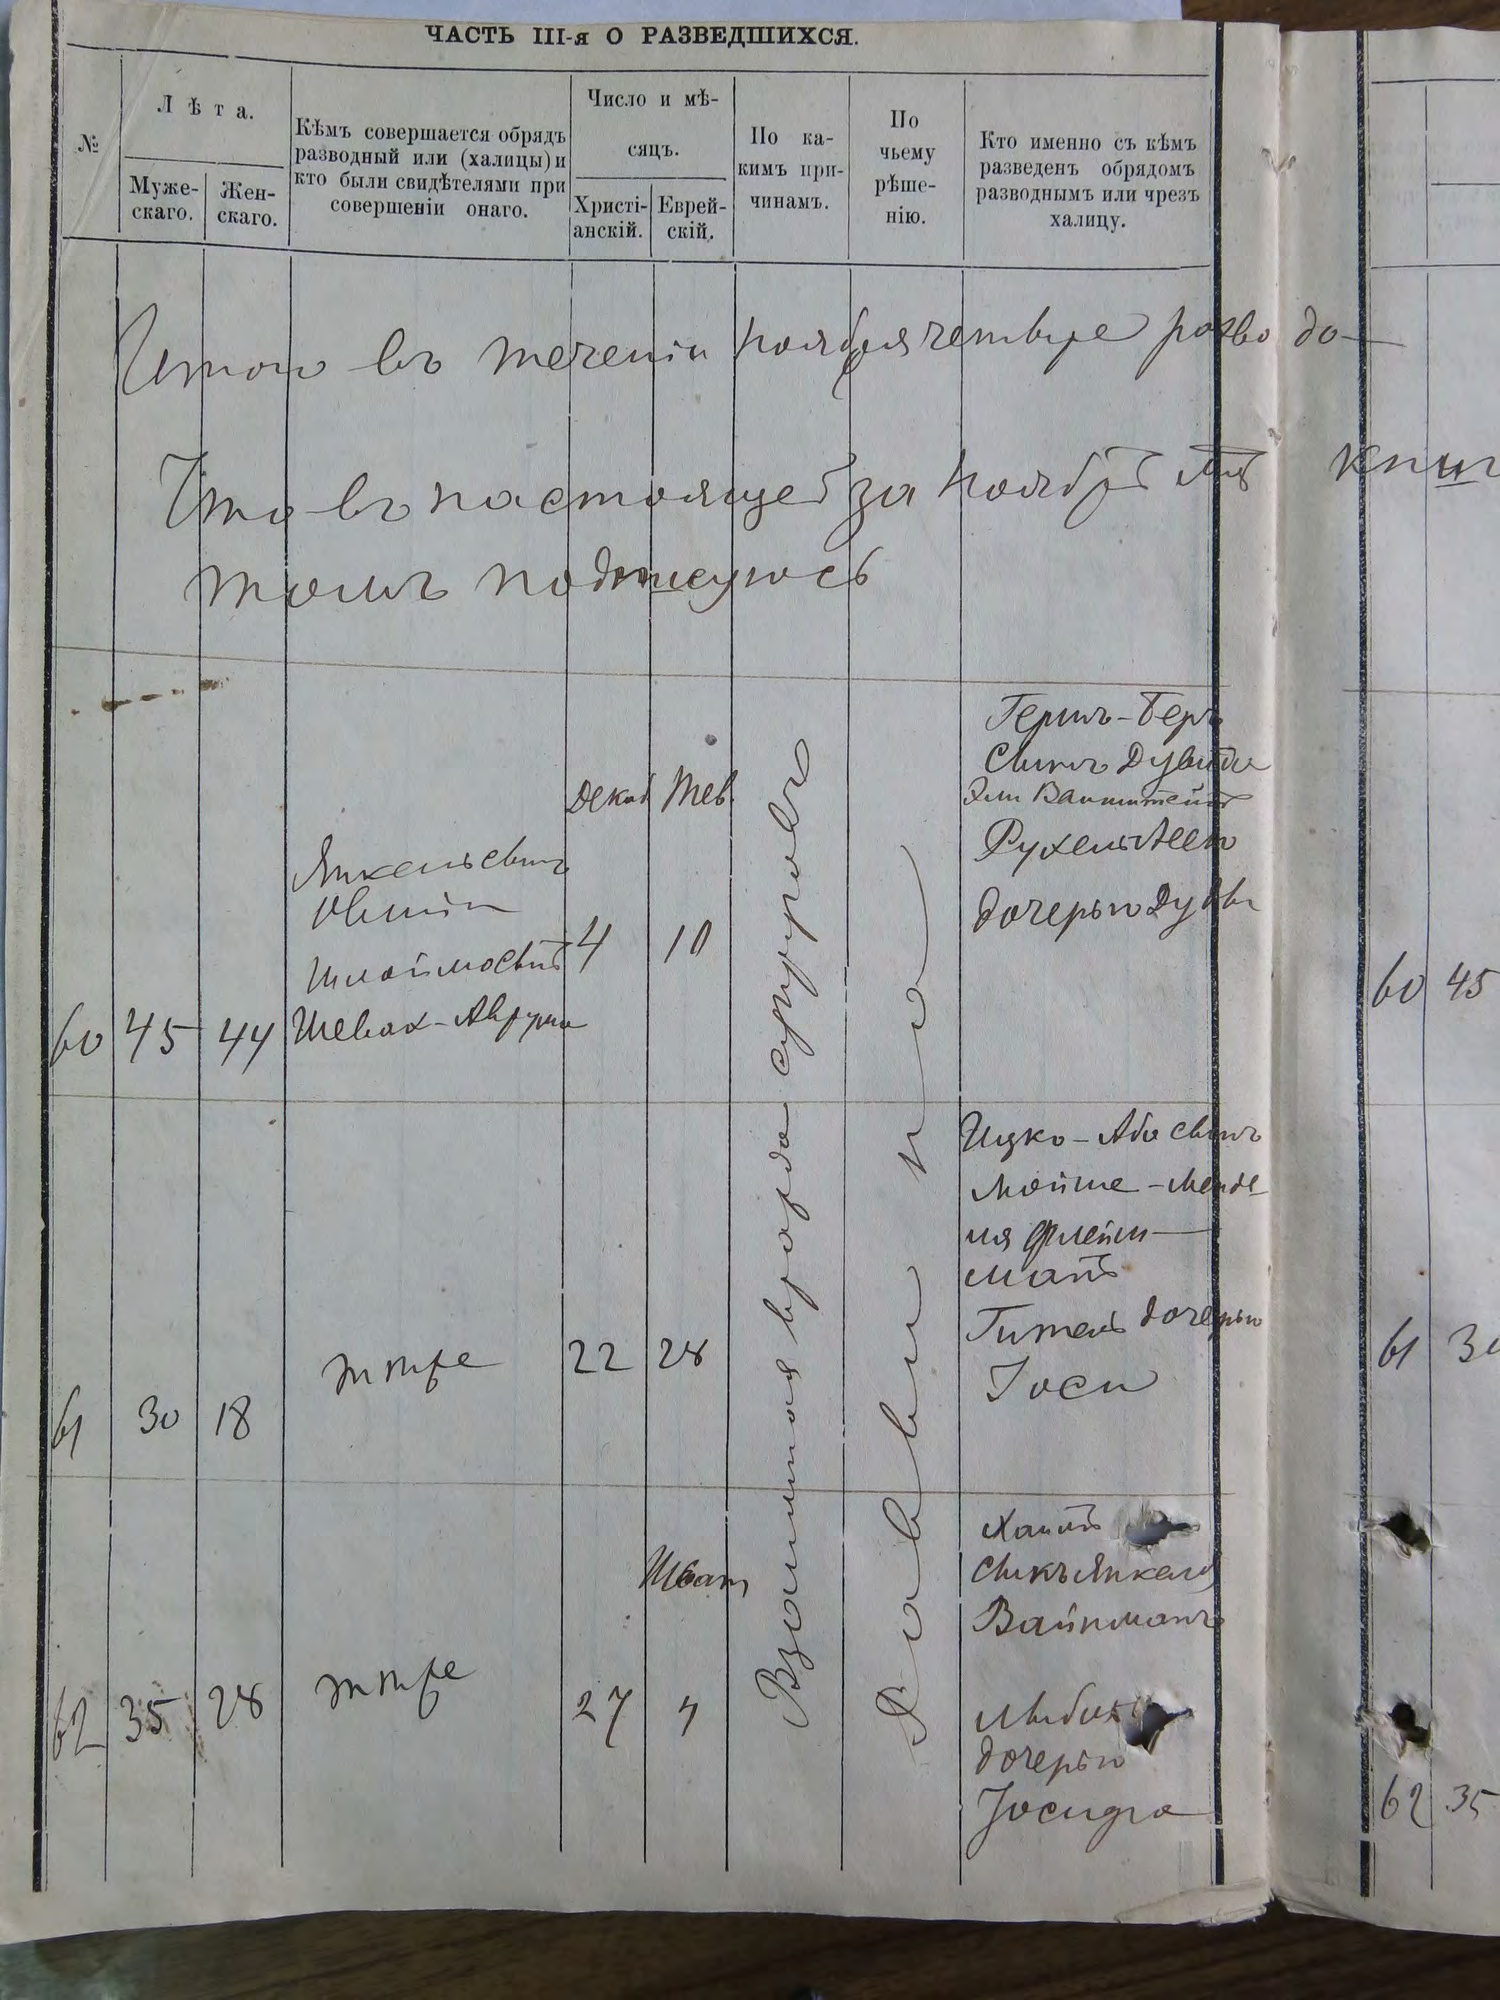 ЧАСТЬ III-я О РАЗВЕДШИХСЯ.
№
Лѣта.
Муже-
скаго.
Жен-
скаго.
Кѣмъ совершается обрядъ
разводный или (халицы) и
кто были свидѣтелями при
совершеніи онаго.
Число и мѣ-
сяцъ.
Христі-
анскій.
Еврей-
скій.
По ка-
кимъ при-
чинамъ.
По
чьему
рѣше-
нію.
Кто именно съ кѣмъ
разведенъ обрядомъ
разводнымъ или чрезъ
халицу.
Итого въ теченіи ноября четыре разво до-
Что въ настоящей за Ноябрь книг
томъ подпишуюсь
60
45
44
Янкель
Шлоймо
Шевах-Аврум
Декаб
4
Тев.
10
Взаимная вражда супруговъ
Раввин
Герш-Беръ
сынъ Дувида
Рухель Леею
дочерью
60 45
61
30
18
тѣже
22
28
Ицко-Аба сынъ
Мойше-Менде
ля Флейш
манъ
Гитель дочерью
Іоси
61 30
62
35
28
тѣже
27
Шват
4
Хаимъ
сынъ Янкеля
Вайнманъ
дочерью
Іосифа
62 35